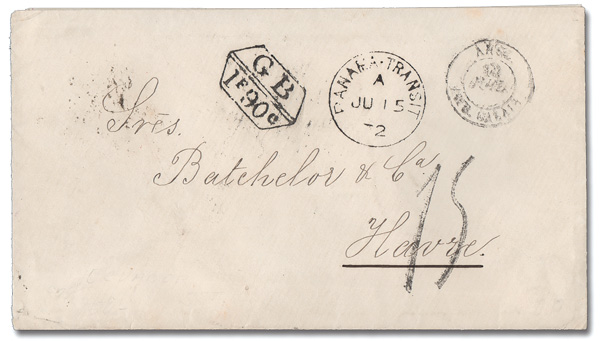 GB
1F90c
PANAMA-TRANSIT
A
JU 15
72
13
CALAIS
Srés.
Batchelor & Ca
15
Havre.